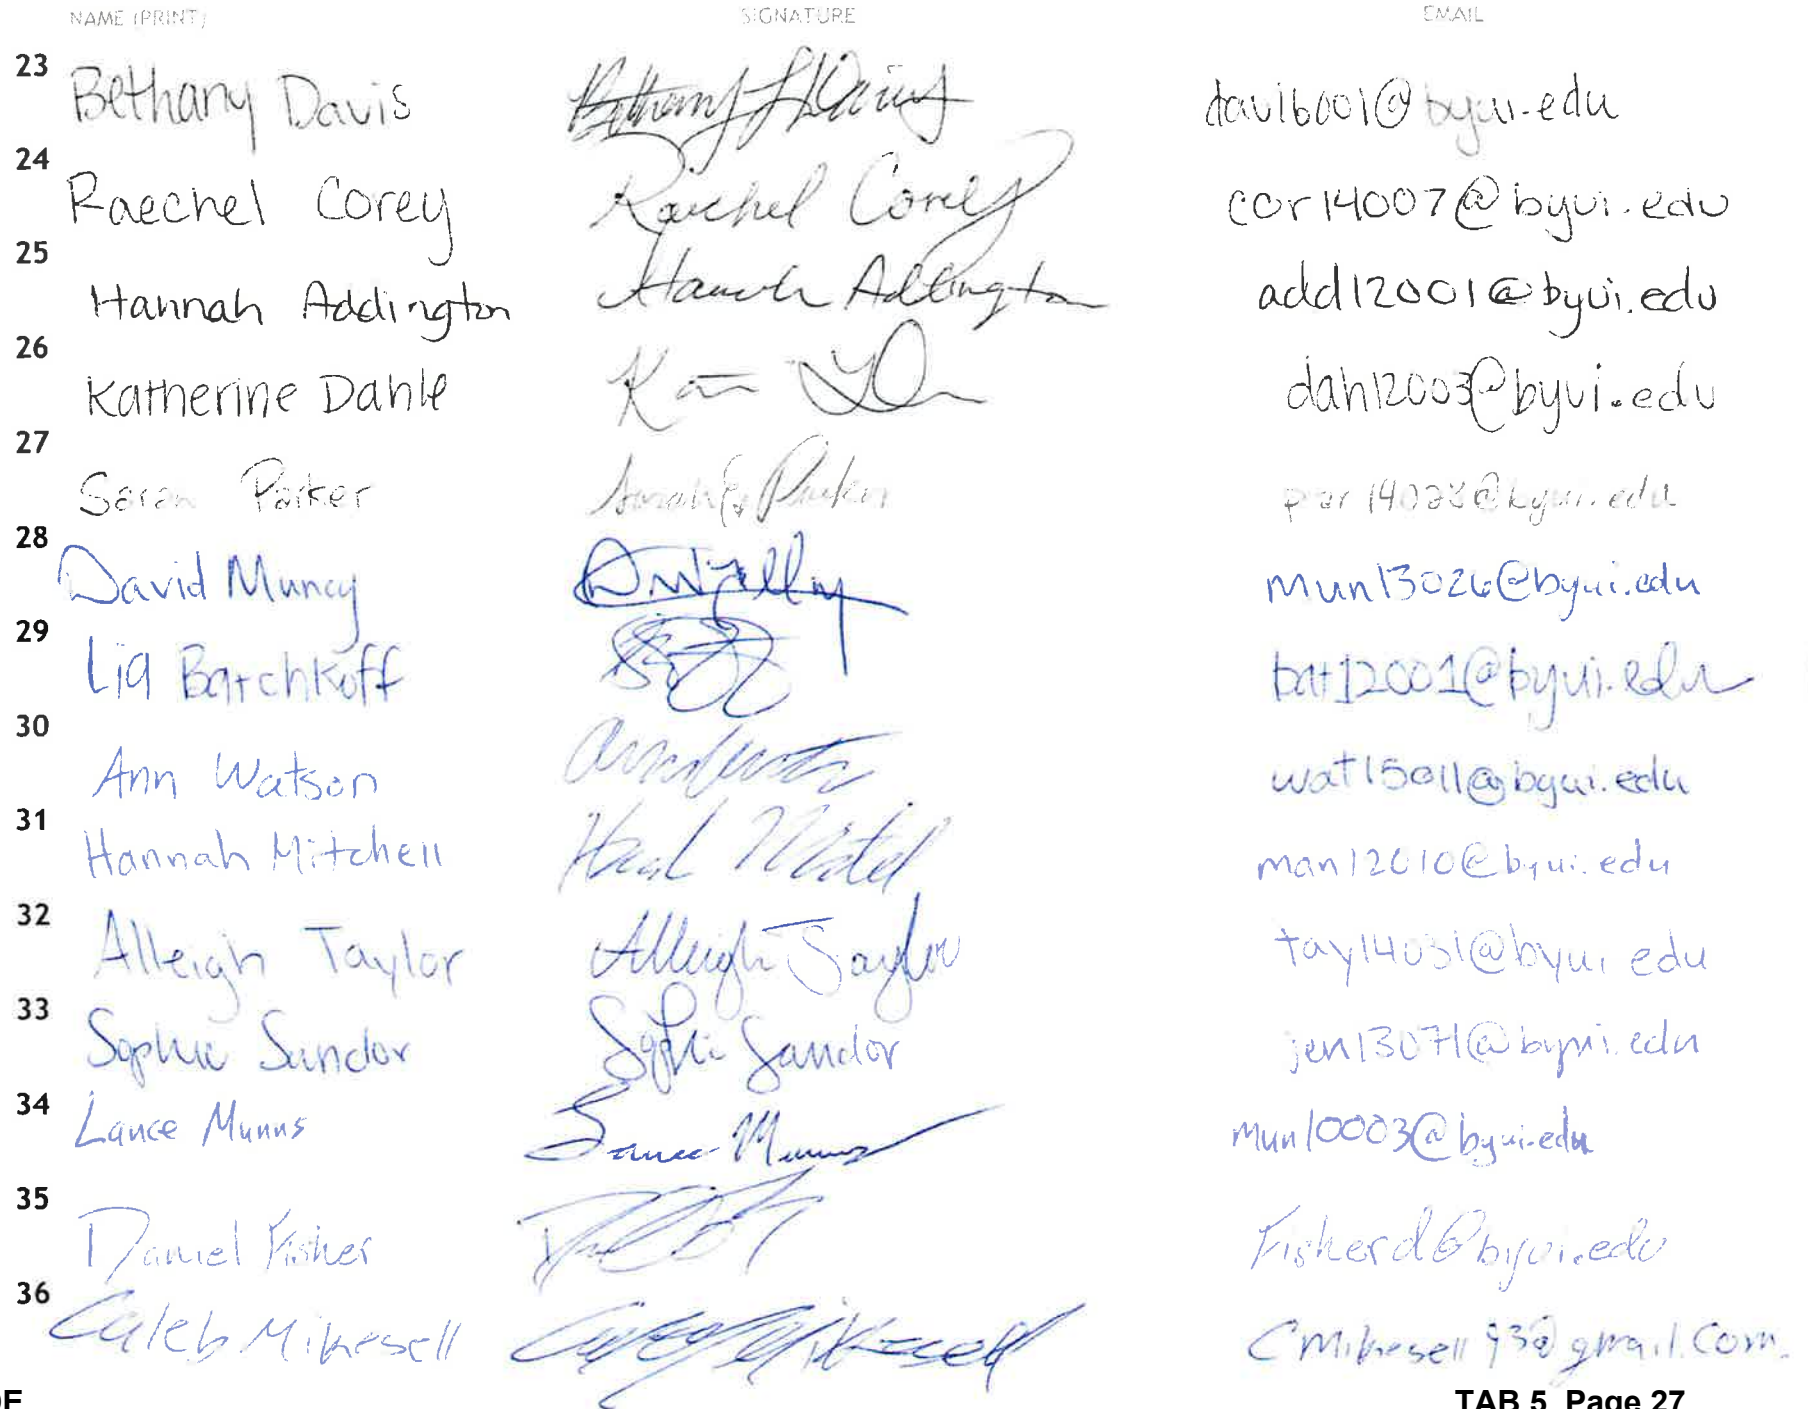 NAME (PRINT) SIGNATURE EMAIL
23 Bethany Davis Bethany L Davis davi6001@byui.edu
24 Raechel Corey Raechel Corey cor14007@byui.edu
25 Hannah Addington Hannah Addington add12001@byui.edu
26 Katherine Dahle dah12003@byui.edu
27 Sarah Parker Sarah Parker par14028@byui.edu
28 David Muncy mun13026@byui.edu
29 Lia Batchkoff bat12001@byui.edu
30 Ann Watson wat15011@byui.edu
31 Hannah Mitchell man12010@byui.edu
32 Alleigh Taylor Alleigh Taylor tay14031@byui.edu
33 Sophie Sandor Sophie Sandor jen13071@byui.edu
34 Lance Munns Lance Munns mun10003@byui.edu
35 Daniel Fisher Fisherd@byui.edu
36 Caleb Mikesell Mikesell CMikesell93@gmail.com.
TAB 5 Page 27